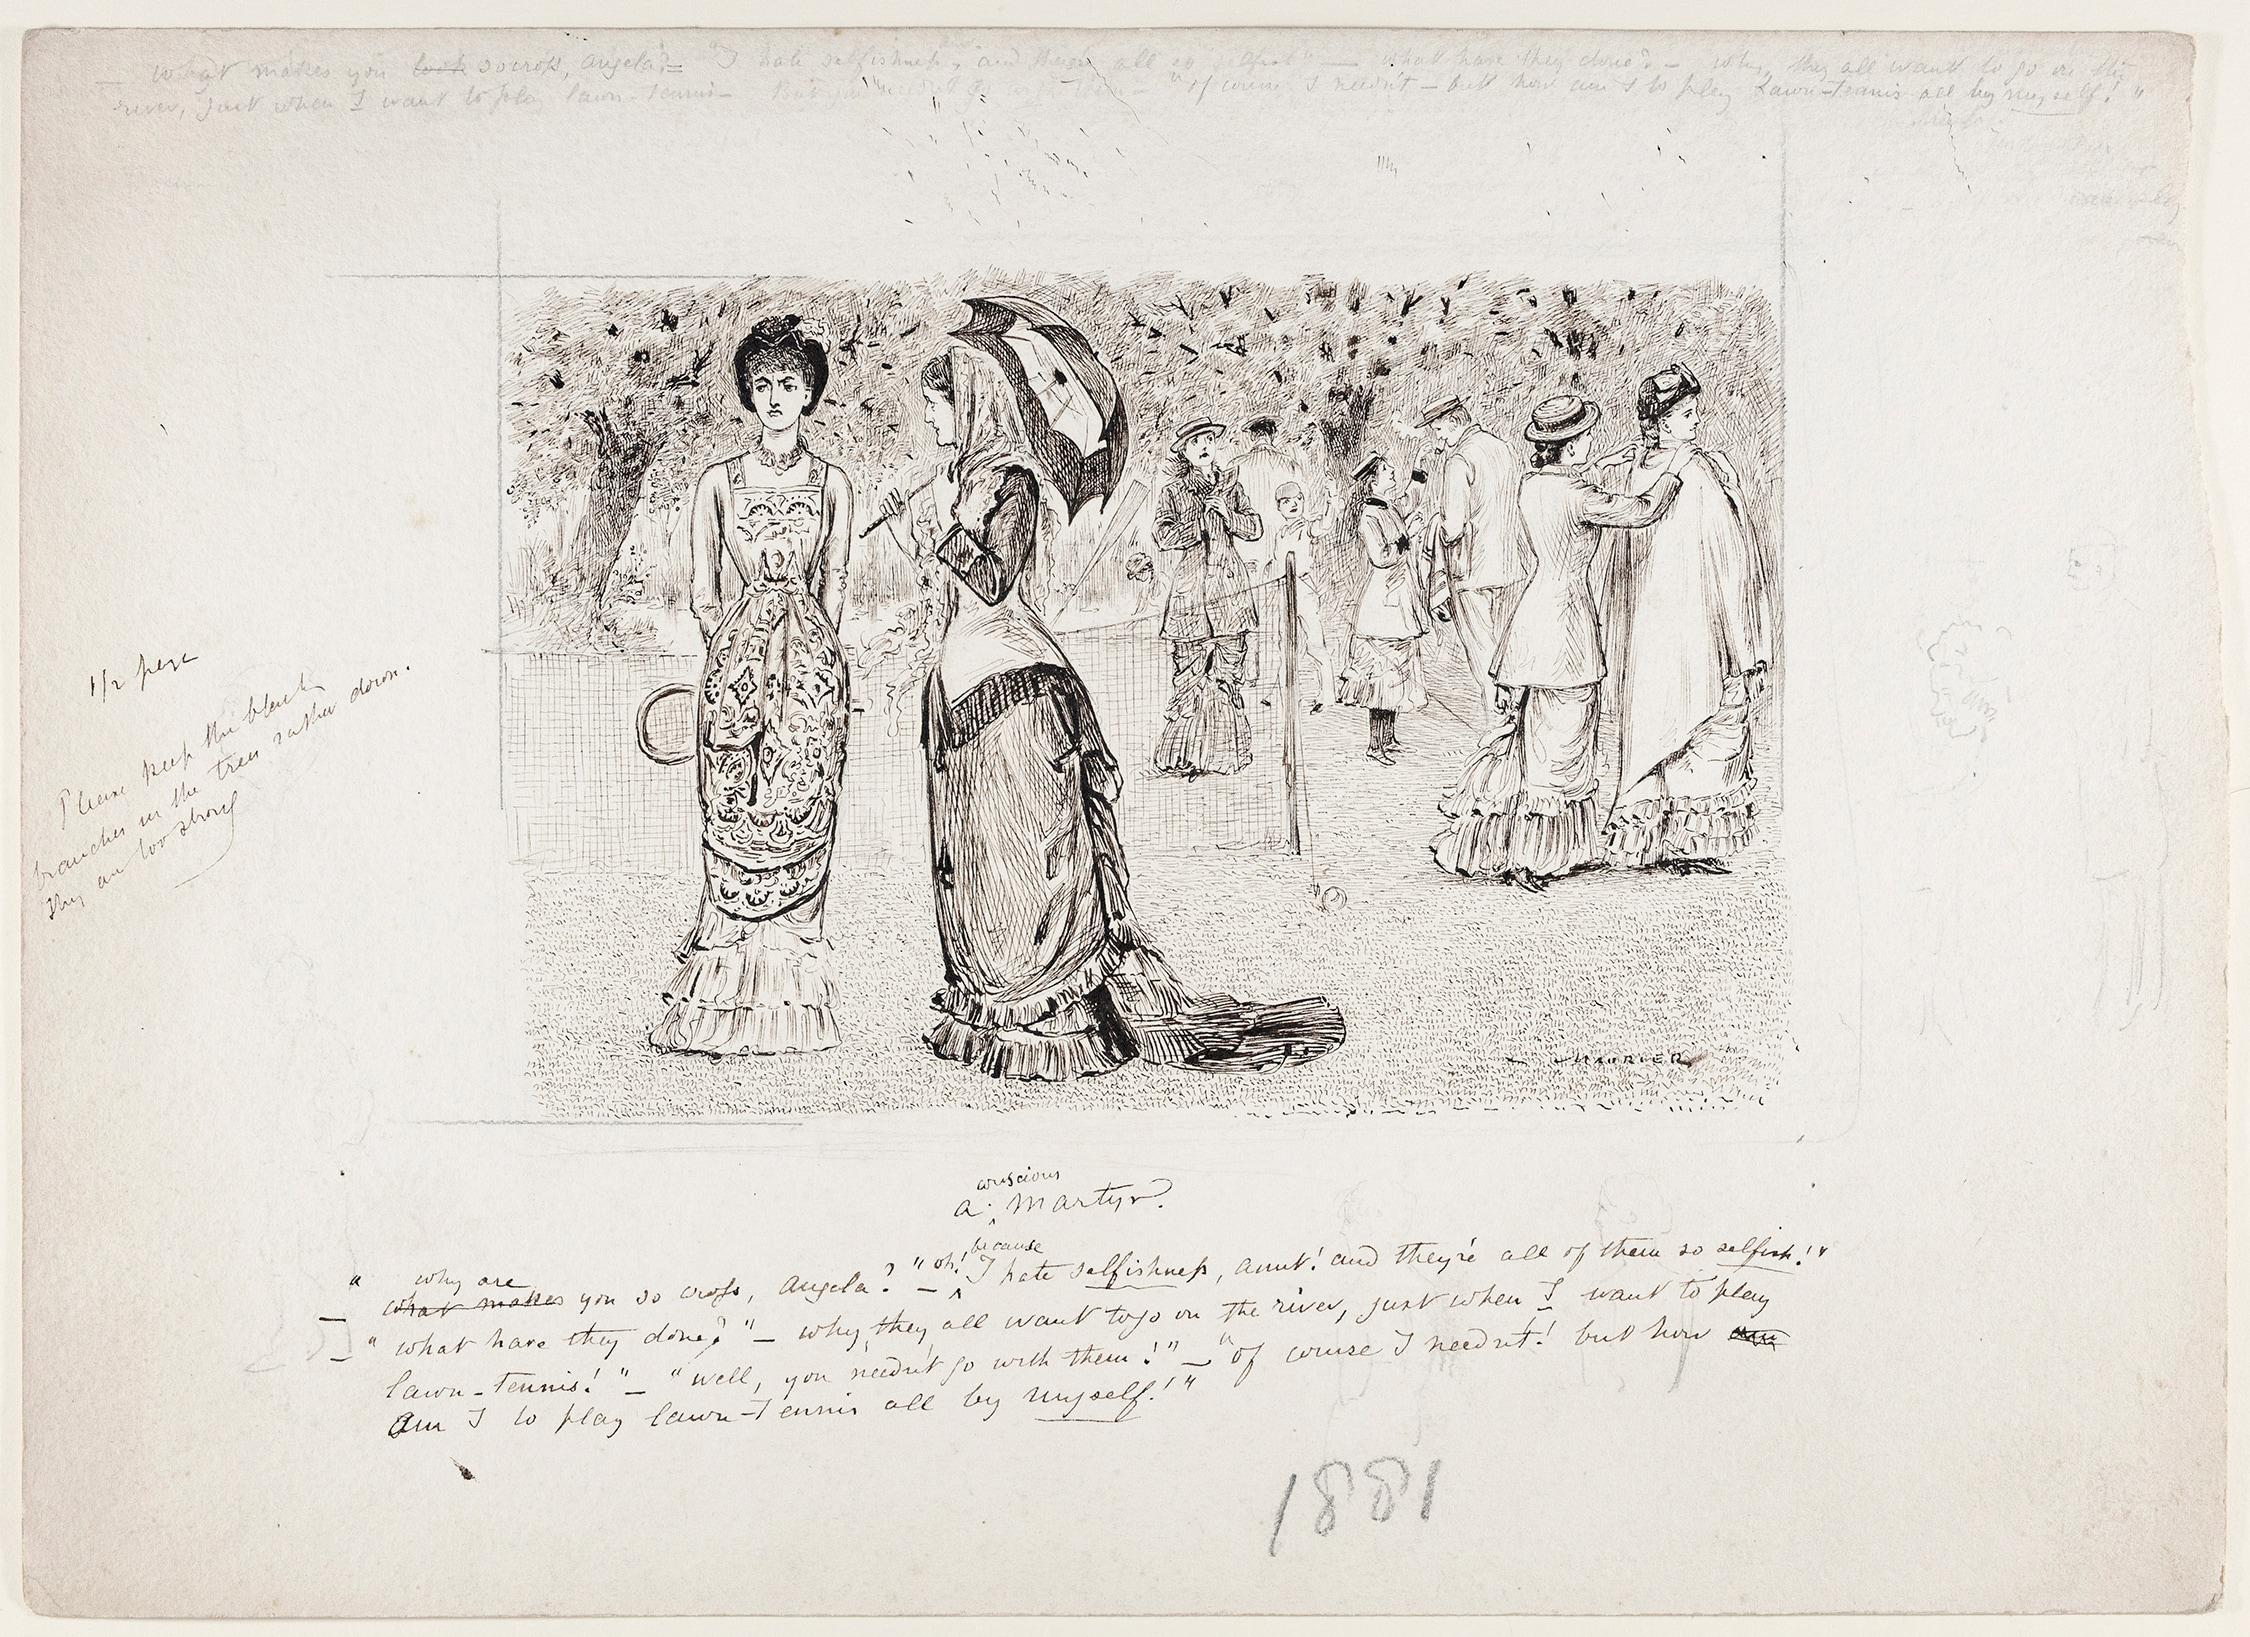 what makes you look so cross, Angela? = "I hate selfishness, and they're all so selfish" — what have they done? — why, they all want to go on the
river, just when I want to play lawn-tennis — But you needn't go with them — "of course I needn't — but how am I to play Lawn-tennis all by myself! "
1/2 page
Please keep the black
branches in the trees rather down.
they are too strong
MAURIER
conscious
a martyr.
" why are because
— what makes you so cross, Angela? " — "oh! I hate selfishness, aunt! and they're all of them so selfish! "
— " what have they done? " — why, they all want to go on the river, just when I want to play
lawn-tennis! " — " well, you needn't go with them! " — "of course I needn't! but how am
Am I to play lawn-tennis all by myself! "
1881